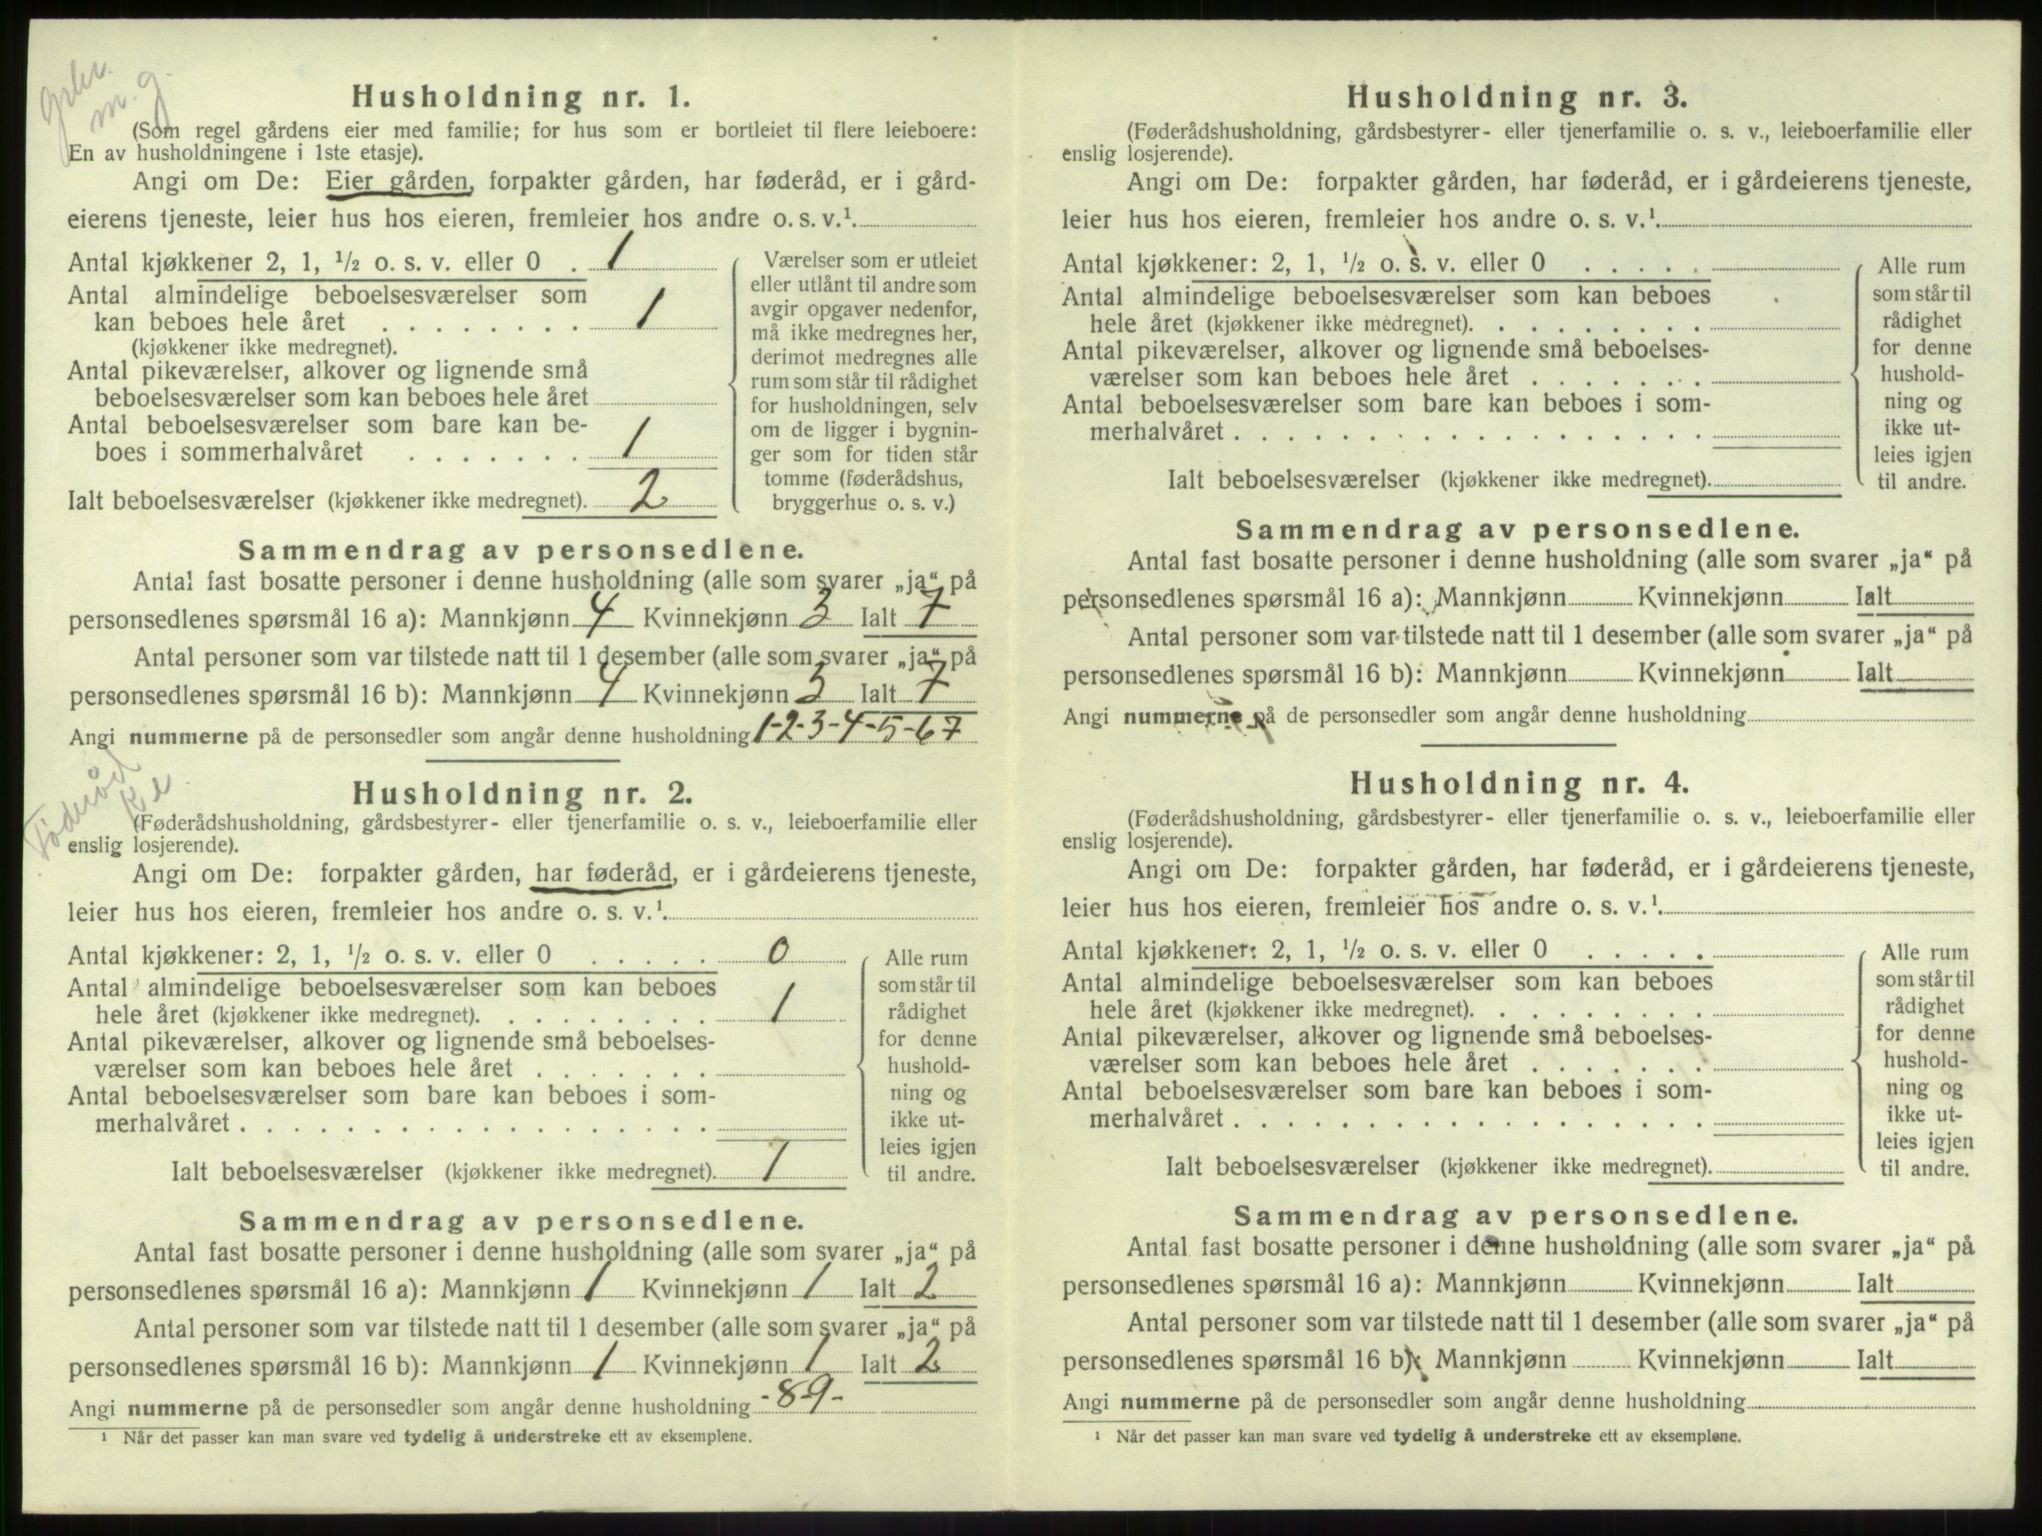 gbr.
m. g.
Husholdning nr. 1.
(Som regel gårdens eier med familie; for hus som er bortleiet til flere leieboere:
En av husholdningene i 1ste etasje).
Angi om De: Eier gården, forpakter gården, har føderåd, er i gård-
eierens tjeneste, leier hus hos eieren, fremleier hos andre o. s. v.¹
Antal kjøkkener 2, 1, ½ o. s. v. eller 0 . 1
Antal almindelige beboelsesværelser som
kan beboes hele året . . . . . . . . 1
(kjøkkener ikke medregnet).
Antal pikeværelser, alkover og lignende små
beboelsesværelser som kan beboes hele året
Antal beboelsesværelser som bare kan be-
boes i sommerhalvåret . . . . . . . 1
Ialt beboelsesværelser (kjøkkener ikke medregnet). 2
Værelser som er utleiet
eller utlånt til andre som
avgir opgaver nedenfor,
må ikke medregnes her,
derimot medregnes alle
rum som står til rådighet
for husholdningen, selv
om de ligger i bygnin-
ger som for tiden står
tomme (føderådshus,
bryggerhus o. s. v.)
Sammendrag av personsedlene.
Antal fast bosatte personer i denne husholdning (alle som svarer „ja“ på
personsedlenes spørsmål 16 a): Mannkjønn 4 Kvinnekjønn 3 Ialt 7
Antal personer som var tilstede natt til 1 desember (alle som svarer „ja“ på
personsedlenes spørsmål 16 b): Mannkjønn 4 Kvinnekjønn 3 Ialt 7
Angi nummerne på de personsedler som angår denne husholdning 1-2-3-4-5-6-7
Føderåd
Husholdning nr. 2.
(Føderådshusholdning, gårdsbestyrer- eller tjenerfamilie o. s. v., leieboerfamilie eller
enslig losjerende).
Angi om De: forpakter gården, har føderåd, er i gårdeierens tjeneste,
leier hus hos eieren, fremleier hos andre o. s. v.¹
Antal kjøkkener: 2, 1, ½ o. s. v. eller 0 . . . . . 0
Antal almindelige beboelsesværelser som kan beboes
hele året (kjøkkener ikke medregnet). . . . . . . . . 1
Antal pikeværelser, alkover og lignende små beboelses-
værelser som kan beboes hele året . . . . . . .
Antal beboelsesværelser som bare kan beboes i som-
merhalvåret . . . . . . . . . . . . . . . . . .
Ialt beboelsesværelser (kjøkkener ikke medregnet). 1
Alle rum
som står til
rådighet
for denne
hushold-
ning og
ikke ut-
leies igjen
til andre.
Sammendrag av personsedlene.
Antal fast bosatte personer i denne husholdning (alle som svarer „ja“ på
personsedlenes spørsmål 16 a): Mannkjønn 1 Kvinnekjønn 1 Ialt 2
Antal personer som var tilstede natt til 1 desember (alle som svarer „ja“ på
personsedlenes spørsmål 16 b): Mannkjønn 1 Kvinnekjønn 1 Ialt 2
Angi nummerne på de personsedler som angår denne husholdning -8-9-
¹ Når det passer kan man svare ved tydelig å understreke ett av eksemplene.
Husholdning nr. 3.
(Føderådshusholdning, gårdsbestyrer- eller tjenerfamilie o. s. v., leieboerfamilie eller
enslig losjerende).
Angi om De: forpakter gården, har føderåd, er i gårdeierens tjeneste,
leier hus hos eieren, fremleier hos andre o. s. v.¹
Antal kjøkkener: 2, 1, ½ o. s. v. eller 0 . . . . .
Antal almindelige beboelsesværelser som kan beboes
hele året (kjøkkener ikke medregnet). . . . . . . . .
Antal pikeværelser, alkover og lignende små beboelses-
værelser som kan beboes hele året . . . . . . .
Antal beboelsesværelser som bare kan beboes i som-
merhalvåret . . . . . . . . . . . . . . . . . .
Ialt beboelsesværelser (kjøkkener ikke medregnet).
Alle rum
som står til
rådighet
for denne
hushold-
ning og
ikke ut-
leies igjen
til andre.
Sammendrag av personsedlene.
Antal fast bosatte personer i denne husholdning (alle som svarer „ja“ på
personsedlenes spørsmål 16 a): Mannkjønn Kvinnekjønn Ialt
Antal personer som var tilstede natt til 1 desember (alle som svarer „ja“ på
personsedlenes spørsmål 16 b): Mannkjønn Kvinnekjønn Ialt
Angi nummerne på de personsedler som angår denne husholdning
Husholdning nr. 4.
(Føderådshusholdning, gårdsbestyrer- eller tjenerfamilie o. s. v., leieboerfamilie eller
enslig losjerende).
Angi om De: forpakter gården, har føderåd, er i gårdeierens tjeneste,
leier hus hos eieren, fremleier hos andre o. s. v.¹
Antal kjøkkener: 2, 1, ½ o. s. v. eller 0 . . . . .
Antal almindelige beboelsesværelser som kan beboes
hele året (kjøkkener ikke medregnet). . . . . . . . .
Antal pikeværelser, alkover og lignende små beboelses-
værelser som kan beboes hele året . . . . . . .
Antal beboelsesværelser som bare kan beboes i som-
merhalvåret . . . . . . . . . . . . . . . . . .
Ialt beboelsesværelser (kjøkkener ikke medregnet).
Alle rum
som står til
rådighet
for denne
hushold-
ning og
ikke ut-
leies igjen
til andre.
Sammendrag av personsedlene.
Antal fast bosatte personer i denne husholdning (alle som svarer „ja“ på
personsedlenes spørsmål 16 a): Mannkjønn Kvinnekjønn Ialt
Antal personer som var tilstede natt til 1 desember (alle som svarer „ja“ på
personsedlenes spørsmål 16 b): Mannkjønn Kvinnekjønn Ialt
Angi nummerne på de personsedler som angår denne husholdning
¹ Når det passer kan man svare ved tydelig å understreke ett av eksemplene.